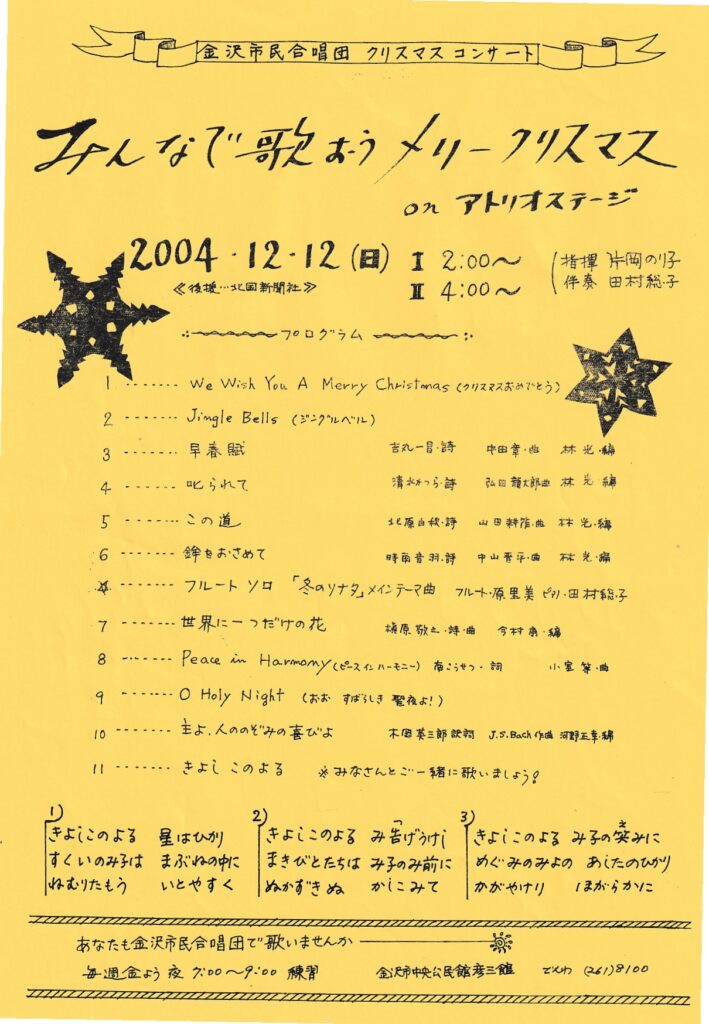 金沢市民合唱団 クリスマス コンサート
みんなで歌おう メリークリスマス
on アトリオステージ
2004・12・12(日) Ⅰ 2:00〜
Ⅱ 4:00〜
指揮 片岡のり子
伴奏 田村総子
≪後援…北国新聞社≫
プログラム
1 ------- We Wish You A Merry Christmas (クリスマスおめでとう)
2 ------- Jingle Bells (ジングルベル)
3 ------- 早春賦 吉丸一昌・詩 中田章・曲 林光・編
4 ------- 叱られて 清水かつら・詩 弘田龍太郎曲 林光・編
5 ------- この道 北原白秋・詩 山田耕筰・曲 林光・編
6 ------- 鉾をおさめて 時雨音羽・詩 中山晋平・曲 林光・編
☆ ------- フルート ソロ 「冬のソナタ」メインテーマ曲 フルート・原里美 ピアノ・田村総子
7 ------- 世界に一つだけの花 槇原敬之・詩・曲 今村康・編
8 ------- Peace in Harmony (ピース イン ハーモニー) 南こうせつ・詞 小室等・曲
9 ------- O Holy Night (おお すばらしき 聖夜よ!)
10 ------- 主よ、人ののぞみの喜びよ 木岡英三郎訳詞 J.S.Bach作曲 河野正幸・編
11 ------- きよし このよる ※みなさんとご一緒に歌いましょう!
1)
きよしこのよる 星はひかり
すくいのみ子は まぶねの中に
ねむりたもう いとやすく
2)
きよしこのよる み告げうけし
まきびとたちは み子のみ前に
ぬかずきぬ かしこみて
3)
きよしこのよる み子の笑みに
めぐみのみよの あしたのひかり
かがやけり ほがらかに
あなたも金沢市民合唱団で歌いませんか
毎週金よう 夜 7:00〜9:00 練習 金沢市中央公民館彦三館 でんわ (261)8100